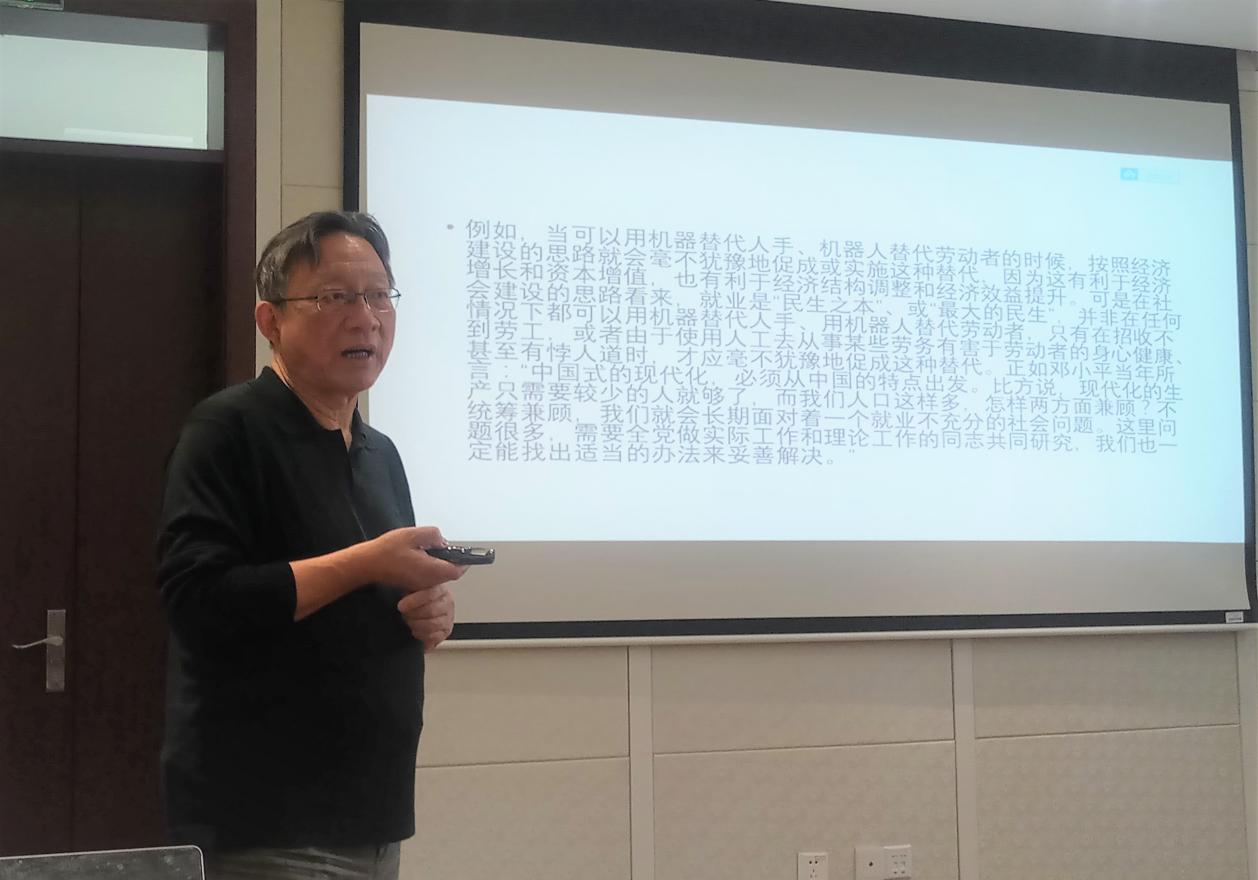 • 例如，当可以用机器替代人手、机器人替代劳动者的时候，按照经济
建设的思路就会毫不犹豫地促成或实施这种替代，因为这有利于经济
增长和资本增值，也有利于经济结构调整和经济效益提升。可是在社
会建设的思路看来，就业是“民生之本”、或“最大的民生”，并非在任何
情况下都可以用机器替代人手、用机器人替代劳动者，只有在招收不
到劳工，或者由于使用人工去从事某些劳务有害于劳动者的身心健康、
甚至有悖人道时，才应毫不犹豫地促成这种替代。正如邓小平当年所
言：“中国式的现代化，必须从中国的特点出发。比方说，现代化的生
产只需要较少的人就够了，而我们人口这样多，怎样两方面兼顾？不
统筹兼顾，我们就会长期面对着一个就业不充分的社会问题。这里问
题很多，需要全党做实际工作和理论工作的同志共同研究，我们也一
定能找出适当的办法来妥善解决。”